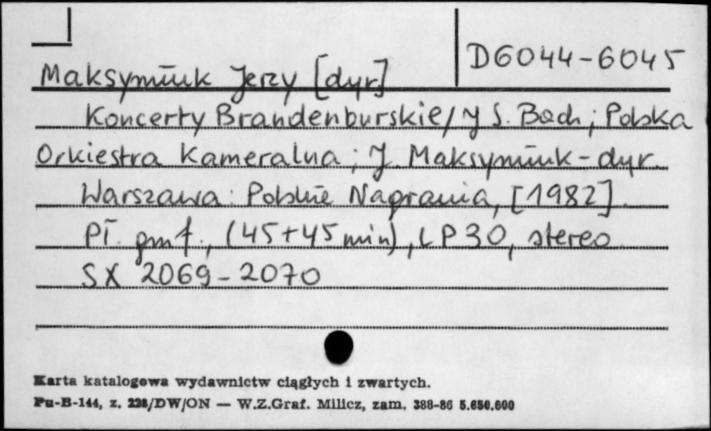 D6044-6045
Maksymiuk Jerzy [dyr]
Koncerty Brandenburskie/J S. Bach; Polska
Orkiestra Kameralna; J. Maksymiuk-dyr.
Warszawa: Polskie Nagrania, [1982].
Pł. gmf., (45+45 min), LP30, stereo
SX 2069-2070
Karta katalogowa wydawnictw ciągłych i zwartych.
Pu-B-144, z. 228/DW/ON — W.Z.Graf. Milicz, zam. 388-86 5.650.600